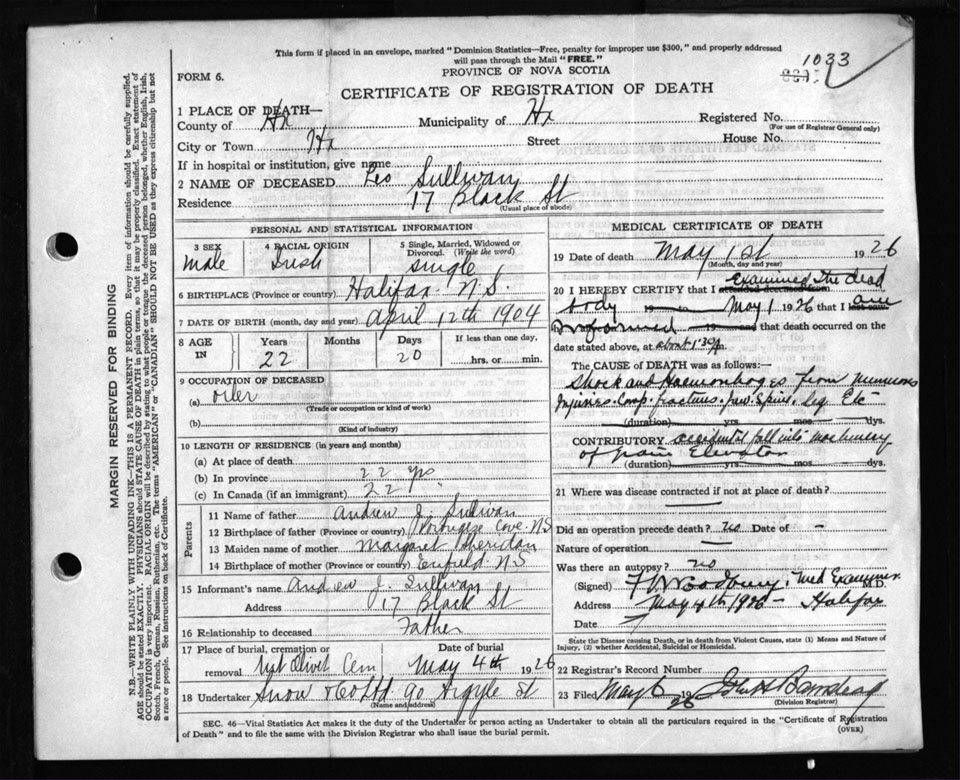 This form if placed in an envelope, marked "Dominion Statistics—Free, penalty for improper use $300," and properly addressed
will pass through the Mail "FREE."
1033
FORM 6.
PROVINCE OF NOVA SCOTIA
CERTIFICATE OF REGISTRATION OF DEATH
1 PLACE OF DEATH—
County of Hx Municipality of Hx Registered No.
(For use of Registrar General only)
City or Town Hx Street House No.
If in hospital or institution, give name
2 NAME OF DECEASED Leo Sullivan
Residence 17 Black St
(Usual place of abode)
PERSONAL AND STATISTICAL INFORMATION
3 SEX Male
4 RACIAL ORIGIN Irish
5 Single, Married, Widowed or Divorced. (Write the word) single
6 BIRTHPLACE (Province or country) Halifax N.S.
7 DATE OF BIRTH (month, day and year) April 12th 1904
8 AGE IN Years 22 Months Days 20 If less than one day, hrs. or min.
9 OCCUPATION OF DECEASED
(a) oiler
(Trade or occupation or kind of work)
(b)
(Kind of industry)
10 LENGTH OF RESIDENCE (in years and months)
(a) At place of death
(b) In province 22 yrs.
(c) In Canada (if an immigrant) 22
Parents
11 Name of father Andrew J. Sullivan
12 Birthplace of father (Province or country) Cove N.S.
13 Maiden name of mother Margaret Sheridan
14 Birthplace of mother (Province or country) Enfield N S
15 Informant's name Andrew J. Sullivan
Address 17 Black St
16 Relationship to deceased Father
17 Place of burial, cremation or removal Mt Olivet Cem
Date of burial May 4th 1926
18 Undertaker Snow & Co Ltd 90 Argyle St
(Name and address)
MEDICAL CERTIFICATE OF DEATH
19 Date of death May 1st 1926
(Month, day and year)
20 I HEREBY CERTIFY that I attended deceased from Examined The dead
body 19 to May 1 1926 that I last saw am
informed 19 and that death occurred on
date stated above, at about 1:30 P.m.
The CAUSE of DEATH was as follows:—
Shock and Haemorrhages from numerous
Injuries. Comp. fractures. Jaw. Spine. leg Etc
(duration) yrs mos dys.
CONTRIBUTORY accidental fall into machinery
of grain Elevator
(duration) yrs. mos dys.
21 Where was disease contracted if not at place of death?
Did an operation precede death? no Date of –
Nature of operation
Was there an autopsy? no
(Signed) F. V. Woodbury, Med Examiner M.D.
Address May 4th 1926 – Halifax
Date
State the Disease causing Death, or in death from Violent Causes, state (1) Means and Nature of
Injury, (2) whether Accidental, Suicidal or Homicidal.
22 Registrar's Record Number
23 Filed May 6 1926
(Division Registrar)
SEC. 46—Vital Statistics Act makes it the duty of the Undertaker or person acting as Undertaker to obtain all the particulars required in the "Certificate of Registration
of Death" and to file the same with the Division Registrar who shall issue the burial permit.
(OVER)
MARGIN RESERVED FOR BINDING
N.B.—WRITE PLAINLY WITH UNFADING INK—THIS IS A PERMANENT RECORD. Every item of information should be carefully supplied.
AGE should be stated EXACTLY. PHYSICIANS should STATE CAUSE OF DEATH in plain terms, so that it may be properly classified. Exact statement of
OCCUPATION is very important. RACIAL ORIGIN will be described by stating to what people or tongue the deceased person belonged, whether English, Irish,
Scotch, French, German, Russian, Ruthenian, etc. The terms "AMERICAN" or "CANADIAN" SHOULD NOT BE USED as they express citizenship but not
a race or people. See instructions on back of Certificate.